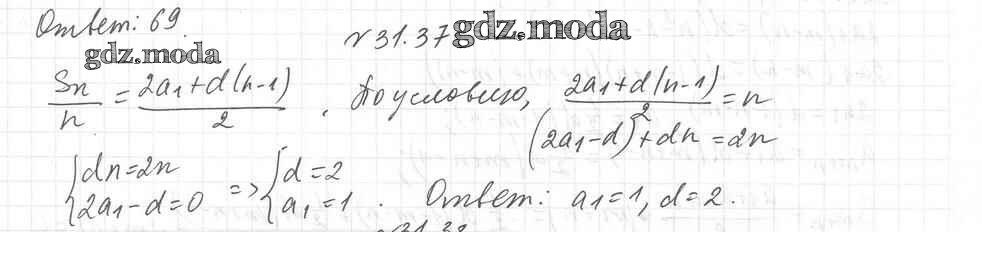 Ответ: 69.
№31.37 gdz.moda
gdz.moda
Sn/n = (2a1+d(n-1))/2. По условию, (2a1+d(n-1))/2 = n
(2a1-d)+dn=2n
{dn=2n => {d=2
{2a1-d=0 {a1=1. Ответ: a1=1, d=2.